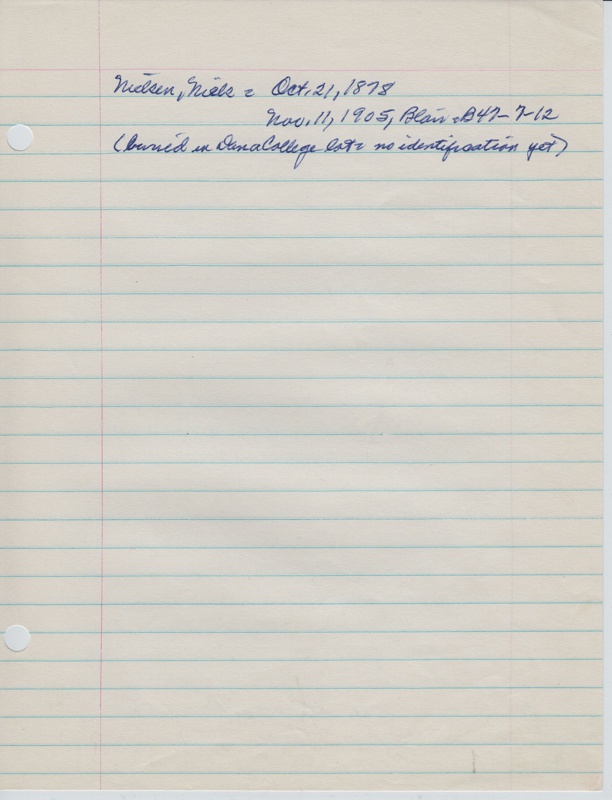 Nielsen, Niels = Oct. 21, 1878
Nov. 11, 1905, Blair = B47-7-12
(buried in Dana College lot = no identification yet)